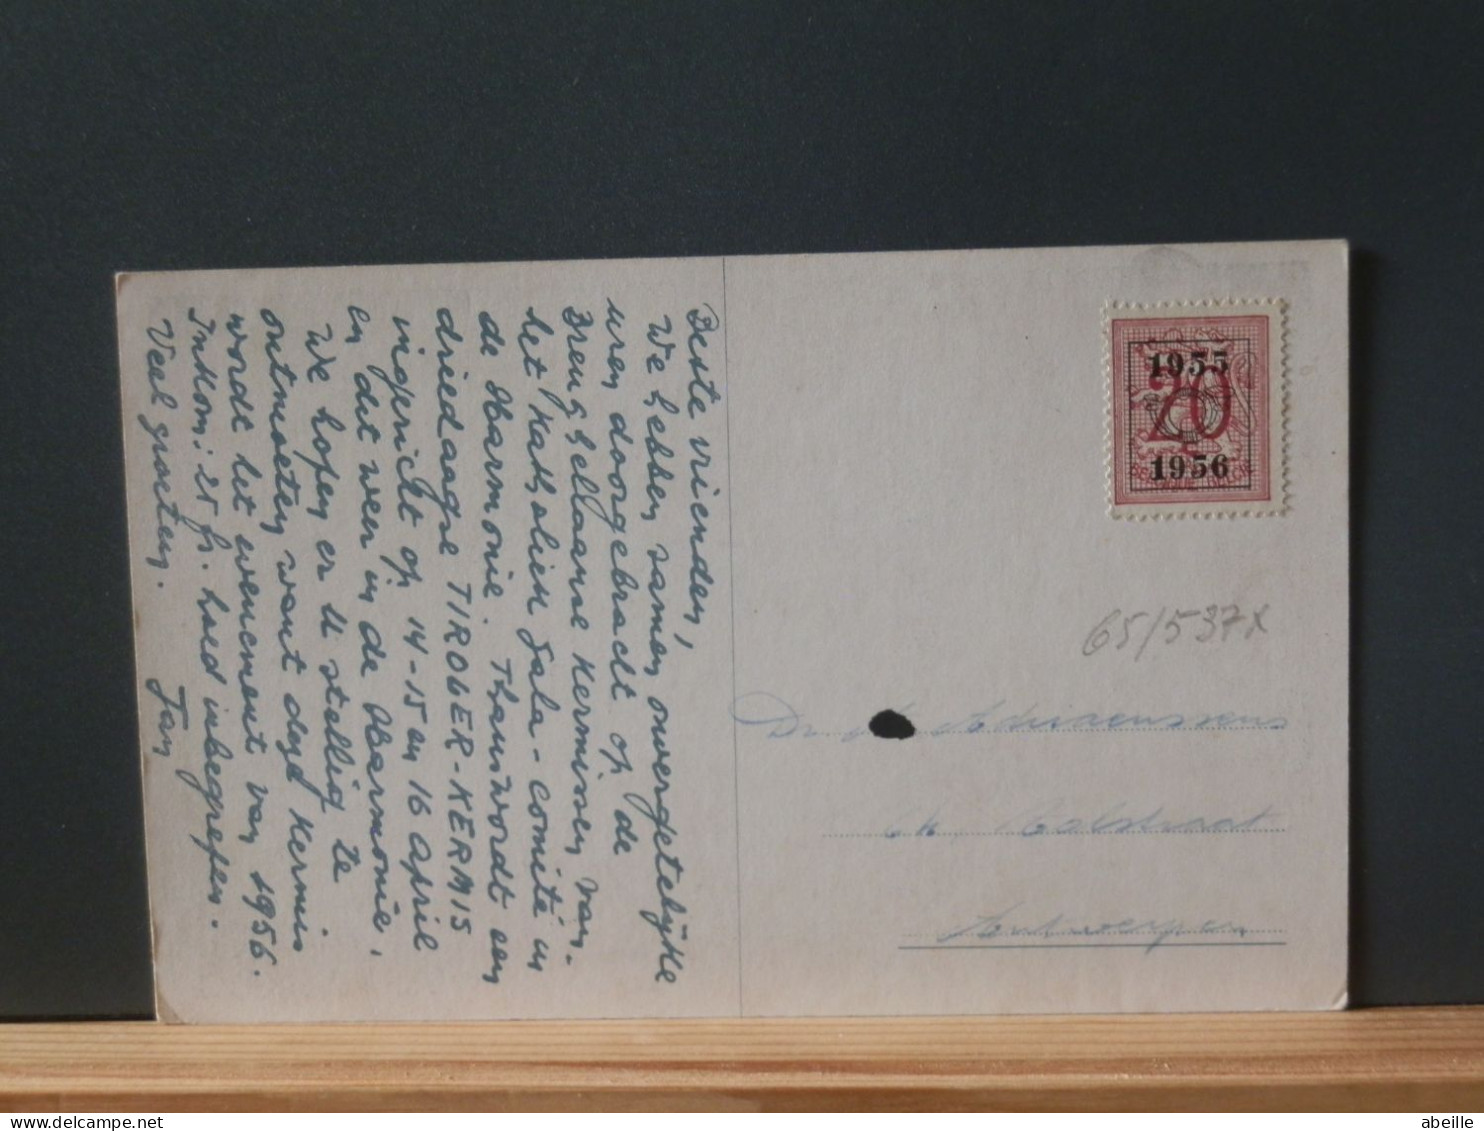 Beste vrienden,
We hebben samen onvergetelijke
uren doorgebracht op de
Breughellaanse Kermissen van
het Katholiek Gala-comité in
de Harmonie. Thans wordt een
driedaagse TIROLER-KERMIS
ingericht op 14-15 en 16 april
en dit weer in de Harmonie.
We hopen er U stellig te
ontmoeten want deze Kermis
wordt het evenement van 1956.
Inkom: 25 fr. hoed inbegrepen.
Veel groeten. Jan
1955
20
1956
BELGIQUE BELGIE
65/537x
Dr Adriaenssens
Antwerpen
delcampe.net
abeille